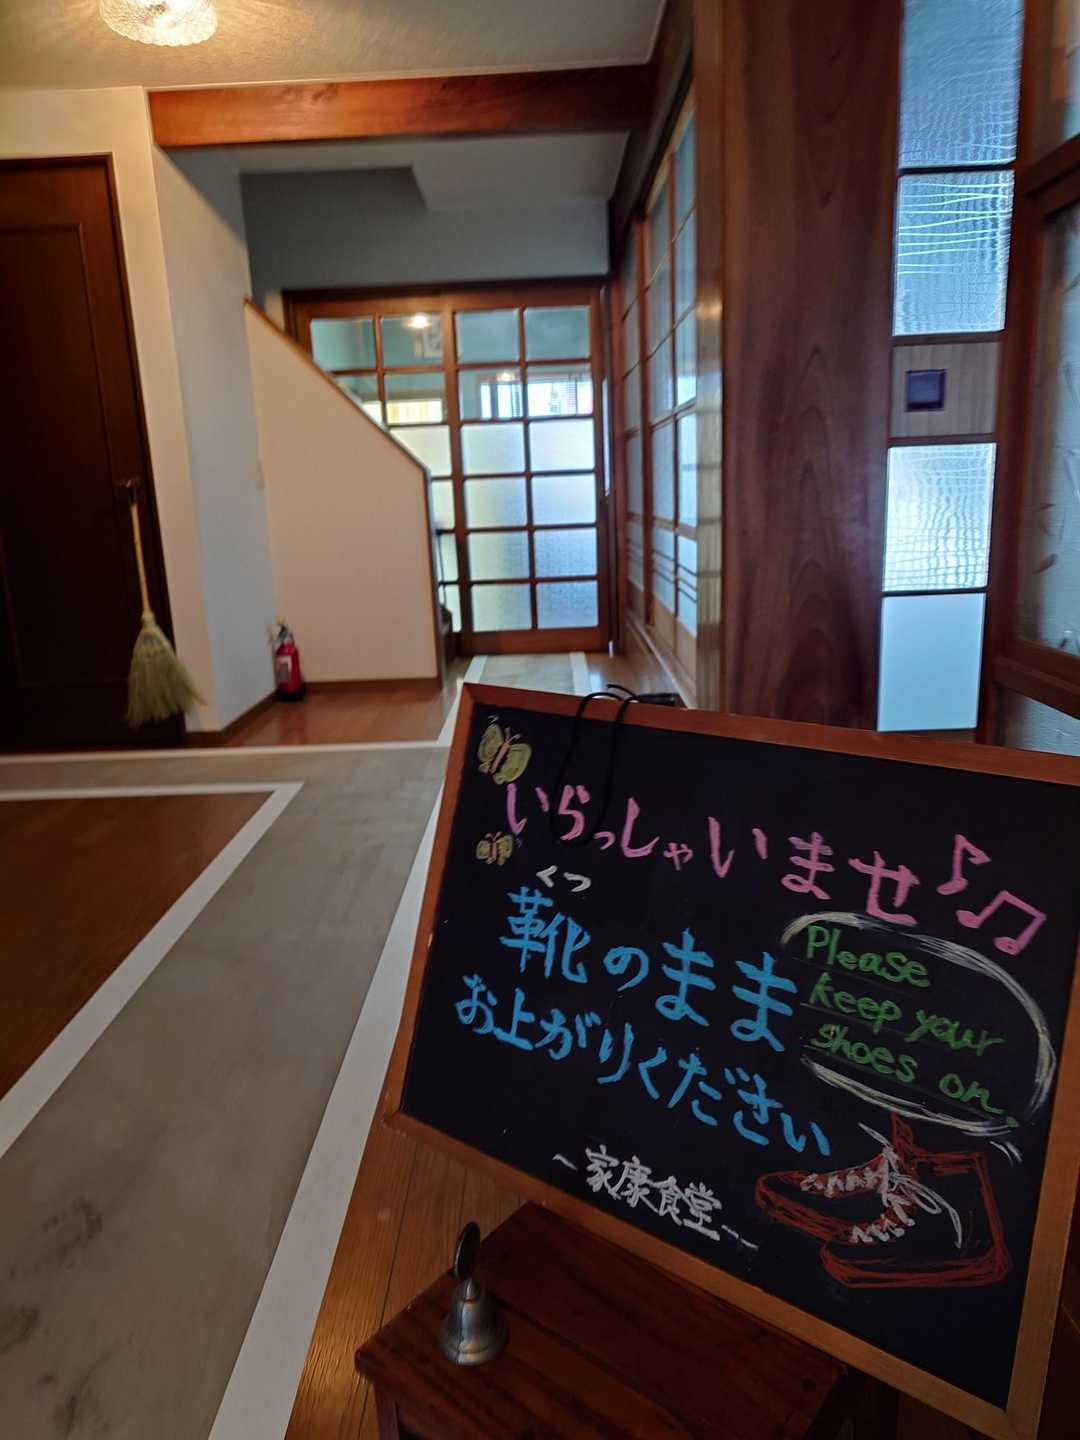 いらっしゃいませ♪♫
くつ
靴のまま
お上がりください
Please
keep your
shoes on.
~家康食堂~